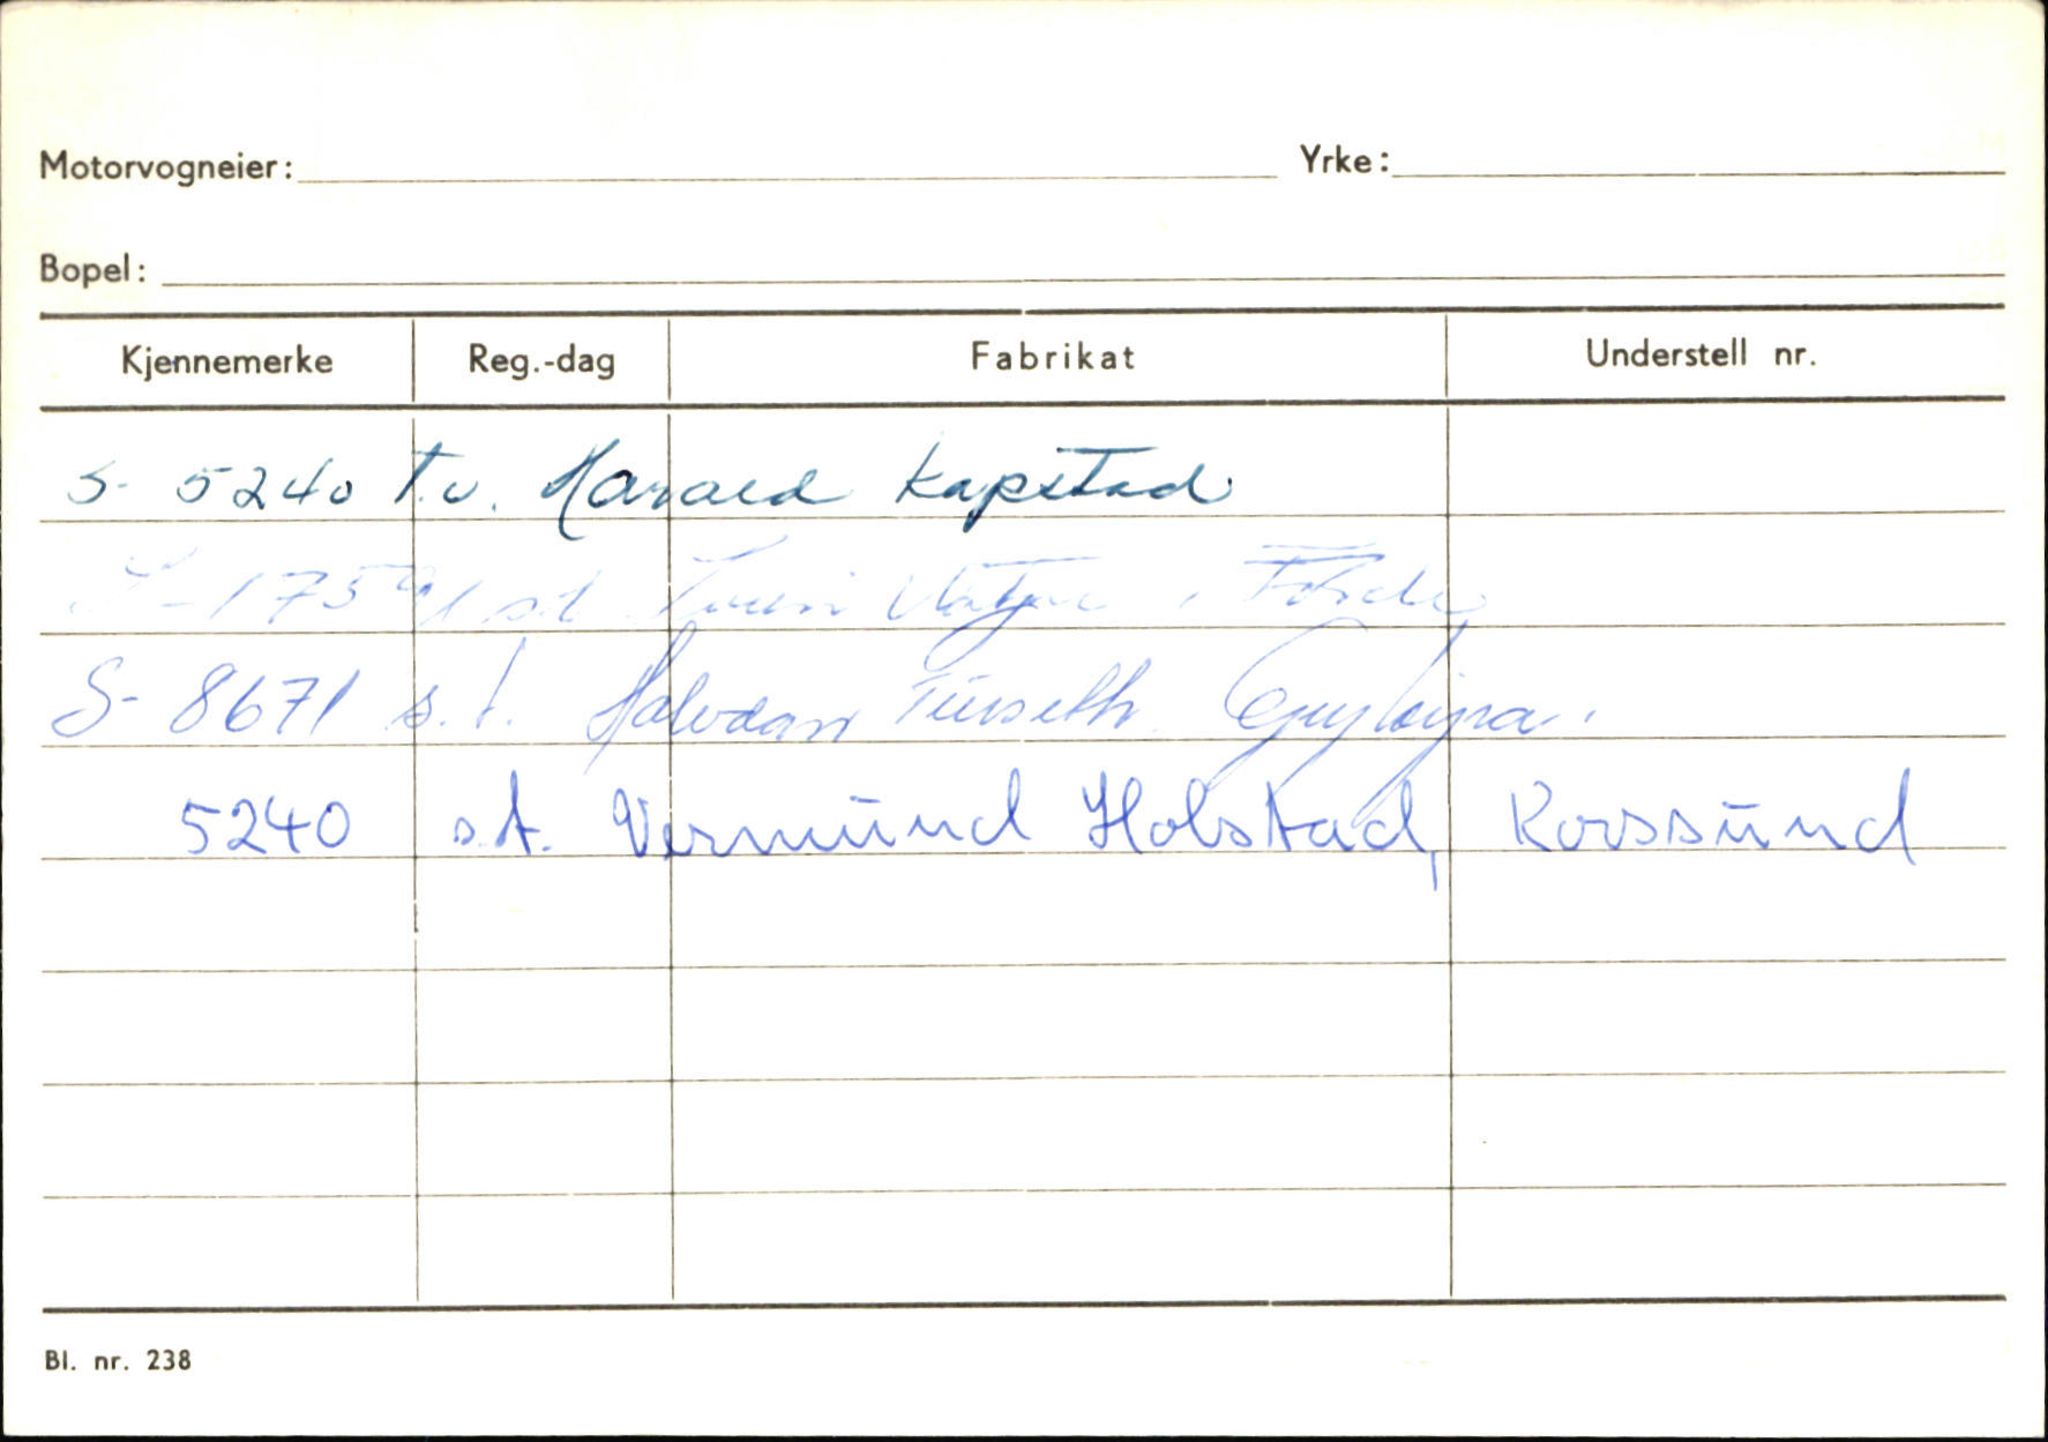 Motorvogneier: Yrke:
Bopel:
Kjennemerke Reg.-dag Fabrikat Understell nr.
S- 5240 t.v. Harald Kapstad
S-175 s.t. Førde
S- 8671 s.t. Halvdan
5240 s.t. Vermund Holstad, Korssund
Bl. nr. 238